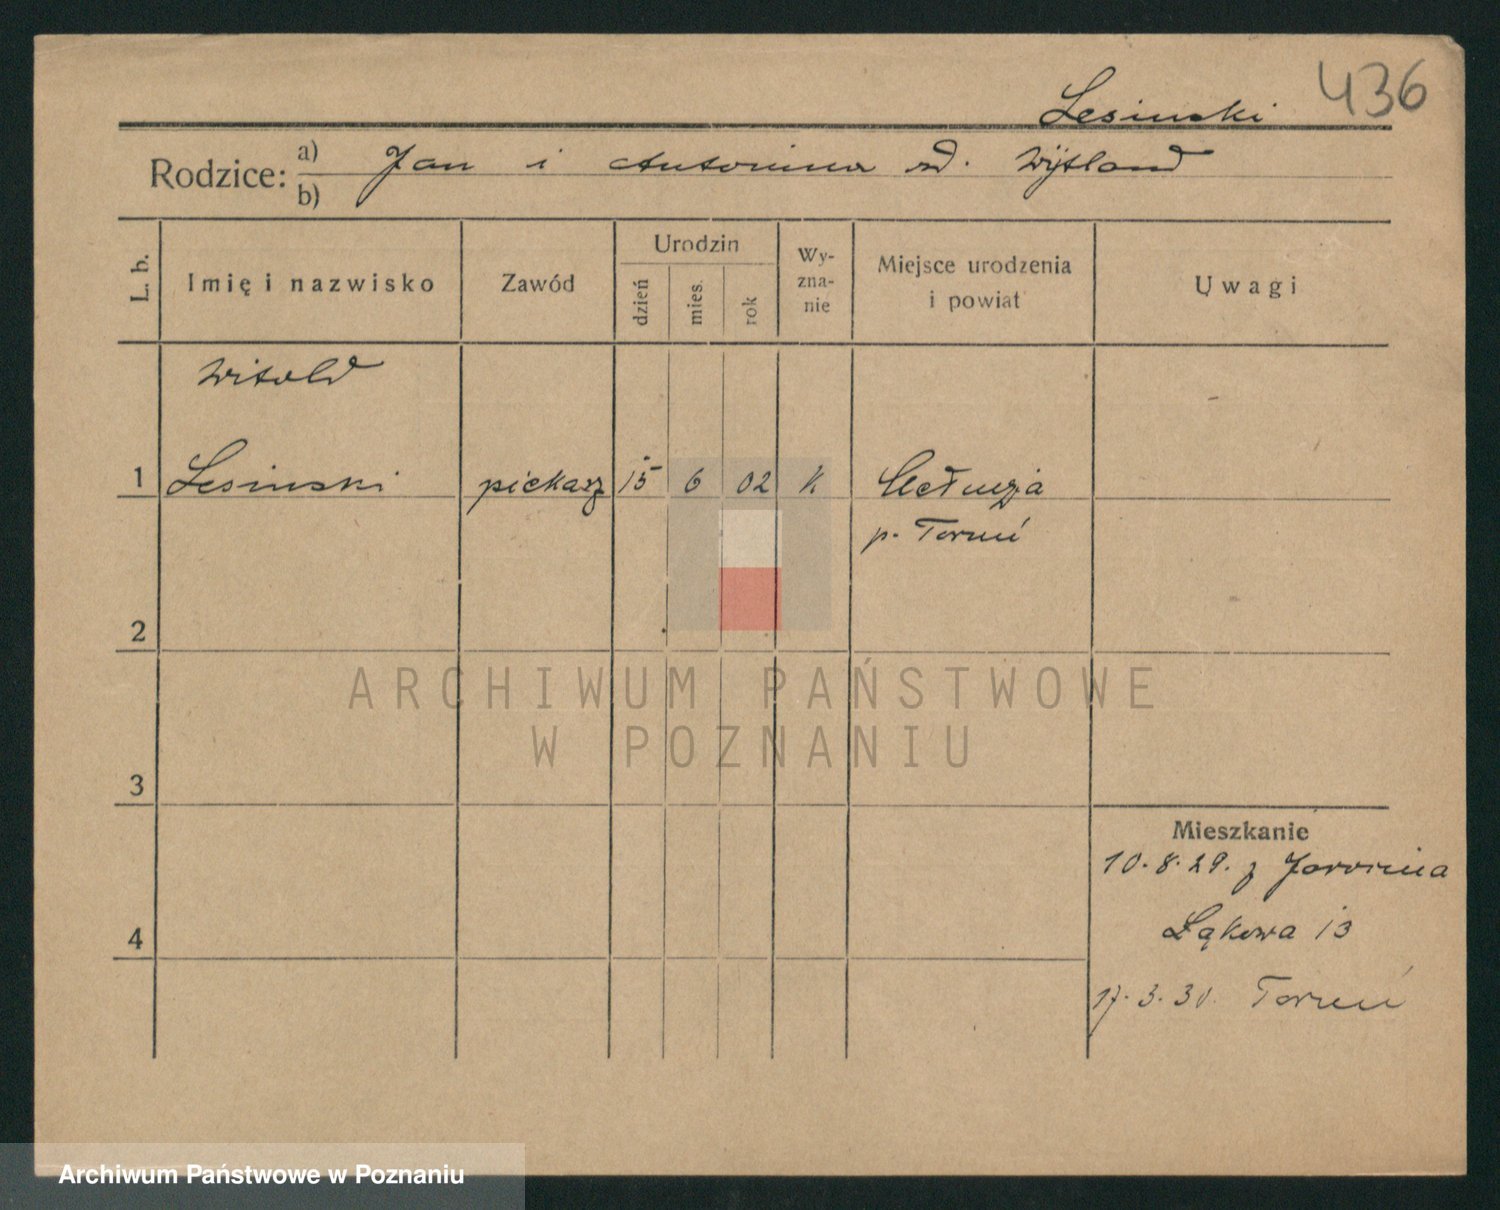 436
Lesinski
Rodzice: a) Jan i Antonina zd. Wijtland
b)
L. b.
Imię i nazwisko
Zawód
Urodzin
dzień
mies.
rok
Wy-
zna-
nie
Miejsce urodzenia
i powiat
Uwagi
Witold
1 Lesinski piekarz 15 6 02 K
p. Toruń
2
3
4
Mieszkanie
10.8.29. z
Łąkowa 13
17.3.30. Toruń
ARCHIWUM PAŃSTWOWE
W POZNANIU
Archiwum Państwowe w Poznaniu